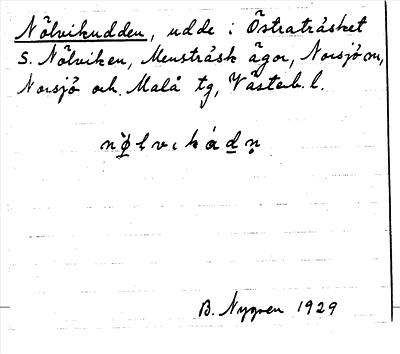 Nölvikudden, udde i Östraträsket
S. Nölviken, Mensträsk ägor, Norsjö sn,
Norsjö och Malå tg, Västerb. l.
B. Nygren 1929